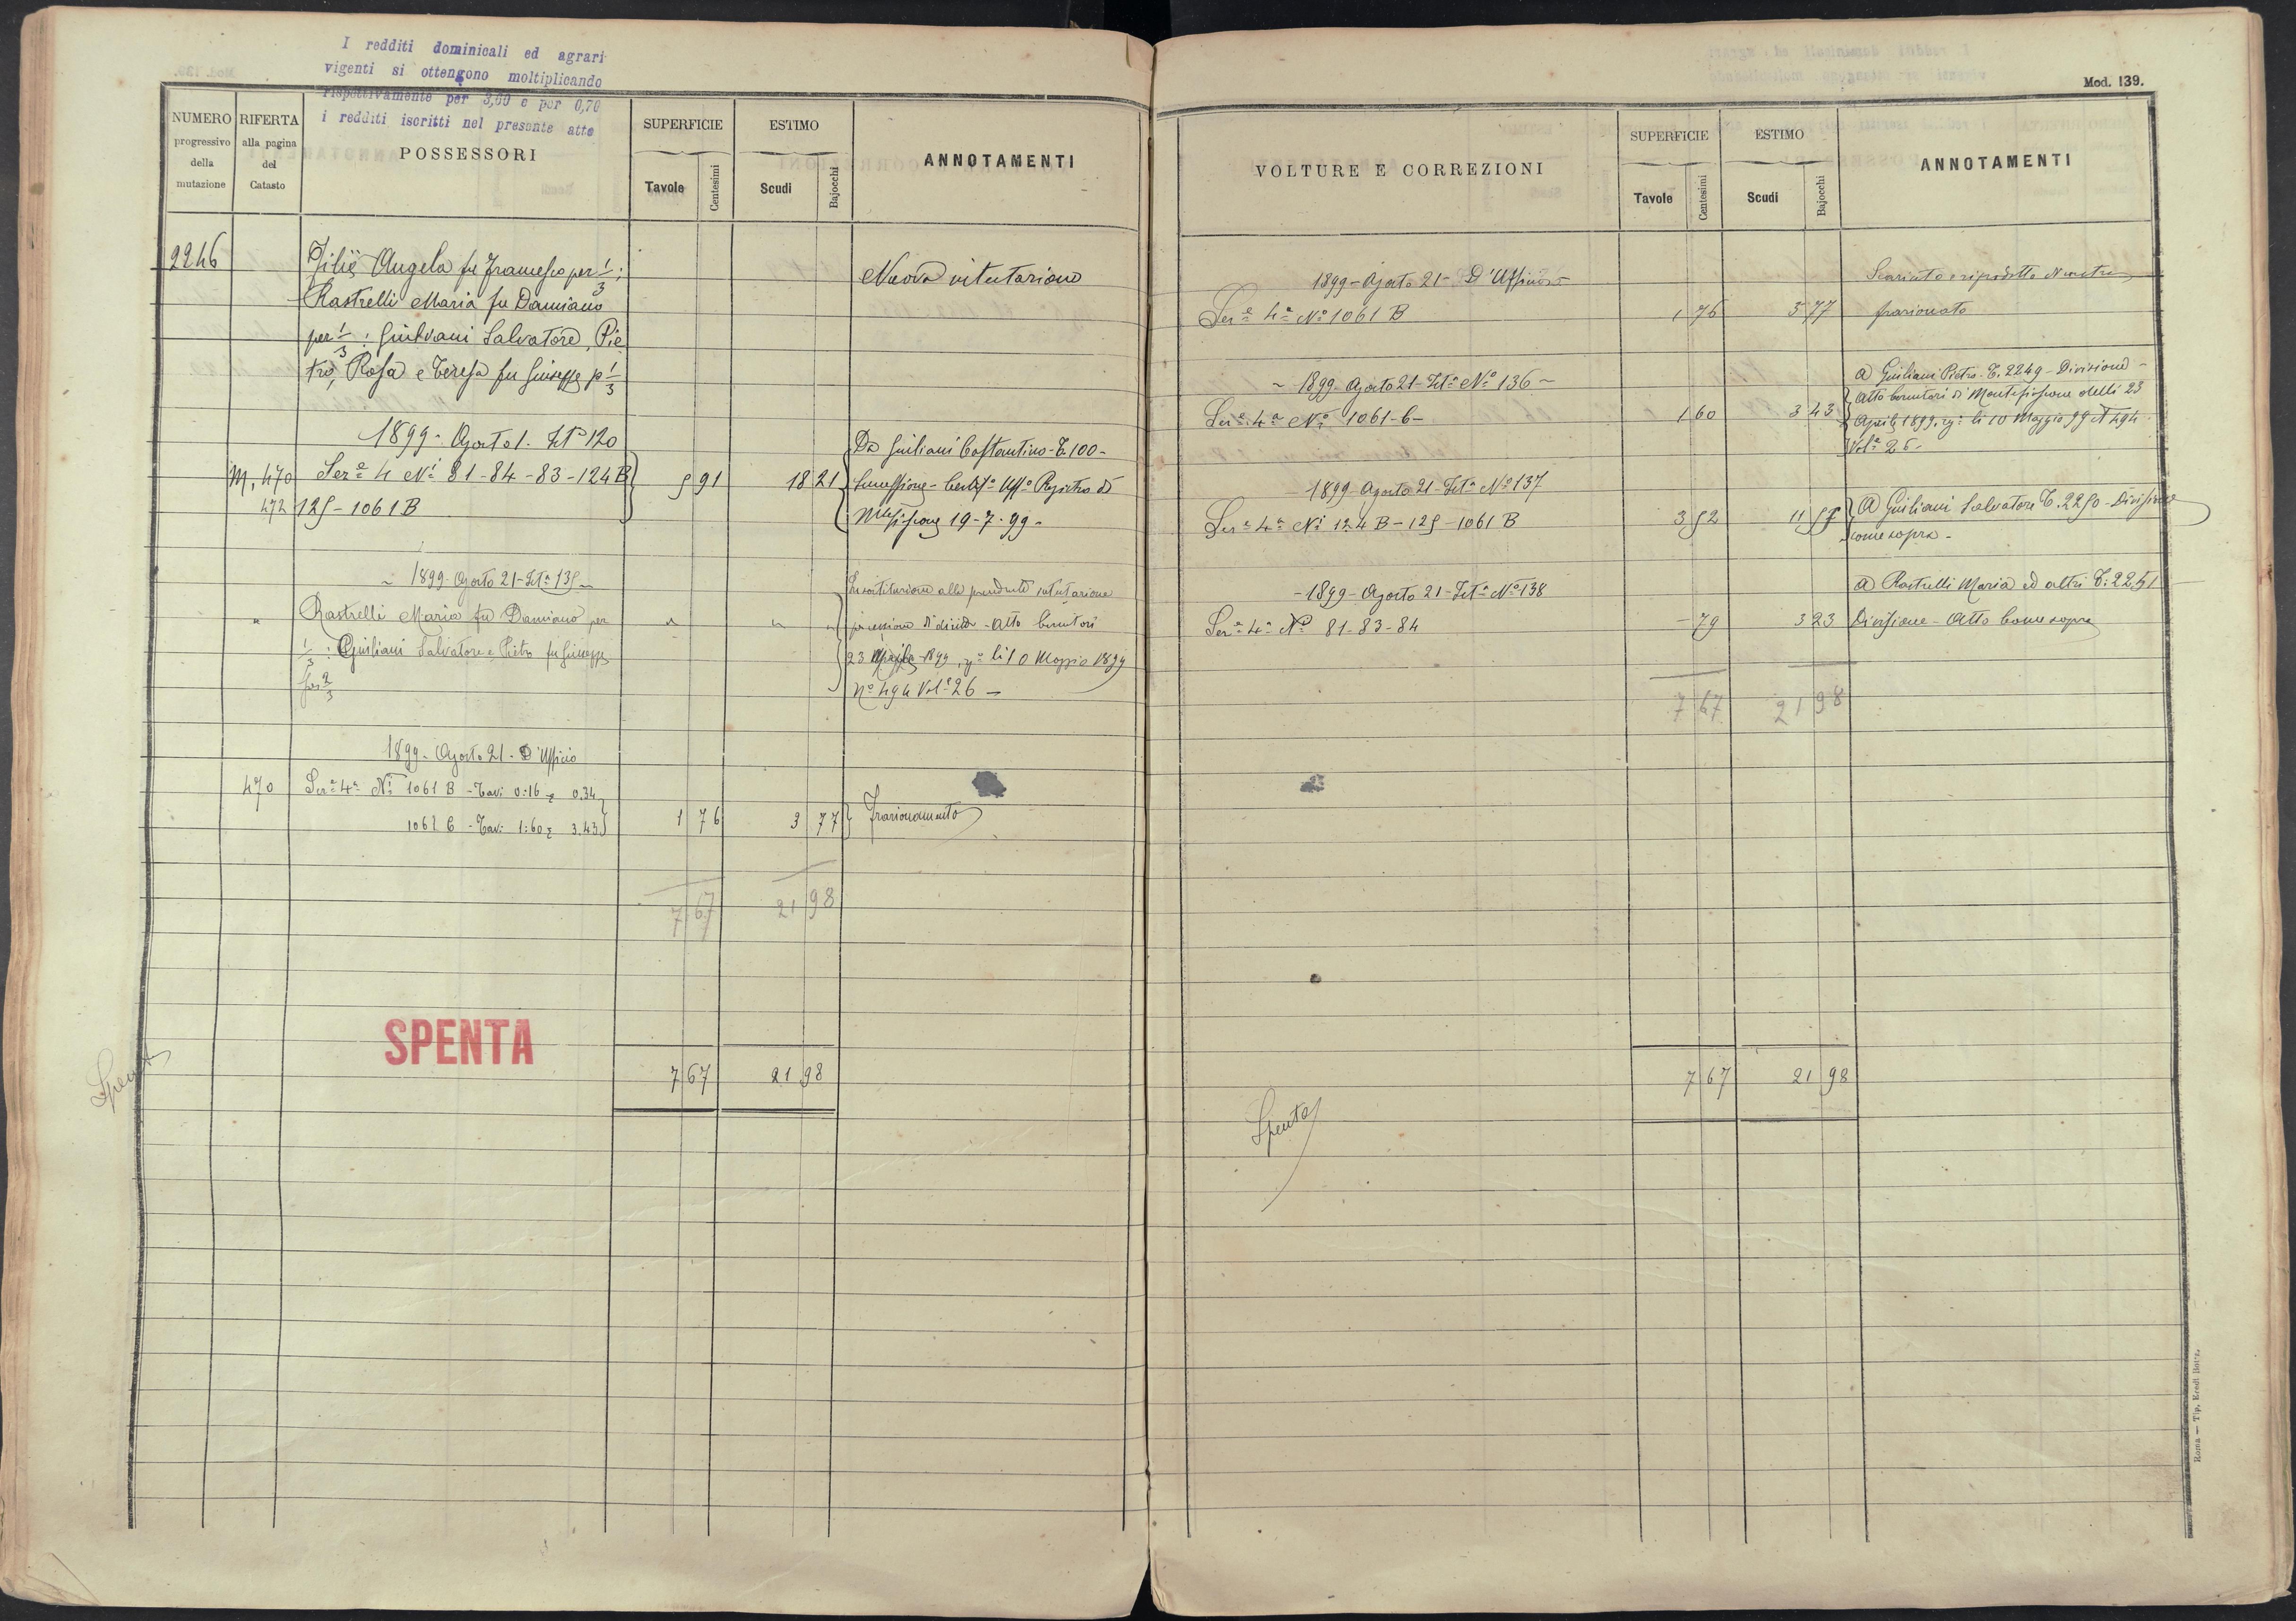 I redditi dominicali ed agrari
vigenti si ottengono moltiplicando
rispettivamente per 3,60 e per 0,70
i redditi iscritti nel presente atto
NUMERO
progressivo
della
mutazione
RIFERTA
alla pagina
del
Catasto
POSSESSORI
SUPERFICIE
Tavole
Centesimi
ESTIMO
Scudi
Bajocchi
ANNOTAMENTI
2246
Angela fu Francesco per 1/3;
Rastrelli Maria fu Damiano
per 1/3; Giuliani Salvatore, Pie
tro, Rosa e Teresa fu Giuseppe p 1/3
Nuova intestazione
1899 - Agosto 1. Let.a 120
M. 470 Ser.e 4 Ni 81-84-83-124B 5 91 18 21
472 125-1061 B
Da Giuliani Costantino - T. 100 -
Successione - Uff.o Registro di
19-7-99 -
~ 1899 - Agosto 21 - Let.a 135 ~
" Rastrelli Maria fu Damiano per " " "
1/3: Giuliani Salvatore e Pietro fu Giuseppe
per 2/3
In sostituzione alla intestazione
per cessione di diritti - Atto
23 Aprile 1899, li 10 Maggio 1899
N.o 494 Vol.e 26 -
1899 - Agosto 21 - D'Ufficio
470 Ser.e 4.a Ni 1061 B - Tav: 0:16 0.34
1061 - Tav: 1:60 3.43 1 76 3 77 Frazionamento
7 67 21 98
SPENTA
Spenta
7 67 21 98
Mod. 139.
VOLTURE E CORREZIONI
SUPERFICIE
Tavole
Centesimi
ESTIMO
Scudi
Bajocchi
ANNOTAMENTI
1899 - Agosto 21 - D'Ufficio -
Ser.e 4.a N.o 1061 B 1 76 3 77
Scaricato e riprodotto
frazionato
~ 1899 - Agosto 21 - Let.a N.o 136 ~
Ser.e 4.a N.o 1061-6- 1 60 3 43
A Giuliani Pietro - T. 2249 - Divisione -
Atto di Montefiascone delli 23
Aprile 1899, li 10 Maggio 99 N 494
Vol.e 26 -
- 1899 - Agosto 21 - Let.a N.o 137
Ser.e 4.a Ni 124 B - 125 - 1061 B 3 52 11 55
A Giuliani Salvatore T. 2250 - Divisione
come sopra -
- 1899 - Agosto 21 - Let.a N.o 138
Ser.e 4.a Ni 81-83-84 - 79 3 23
A Rastrelli Maria ed altri T. 2251
Divisione - Atto Come sopra
7 67 21 98
7 67 21 98
Spenta
Roma — Tip. Eredi Botta.